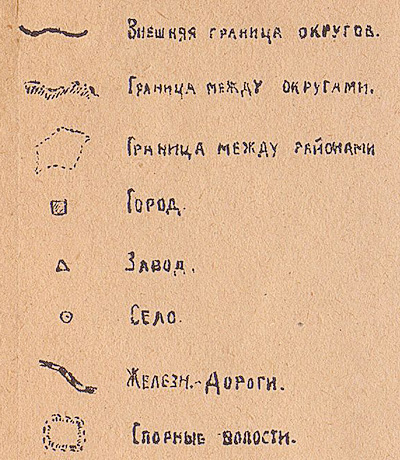 Внешняя граница округов.
Граница между округами.
Граница между районами
Город.
Завод.
Село.
Железн.-Дороги.
Спорные волости.